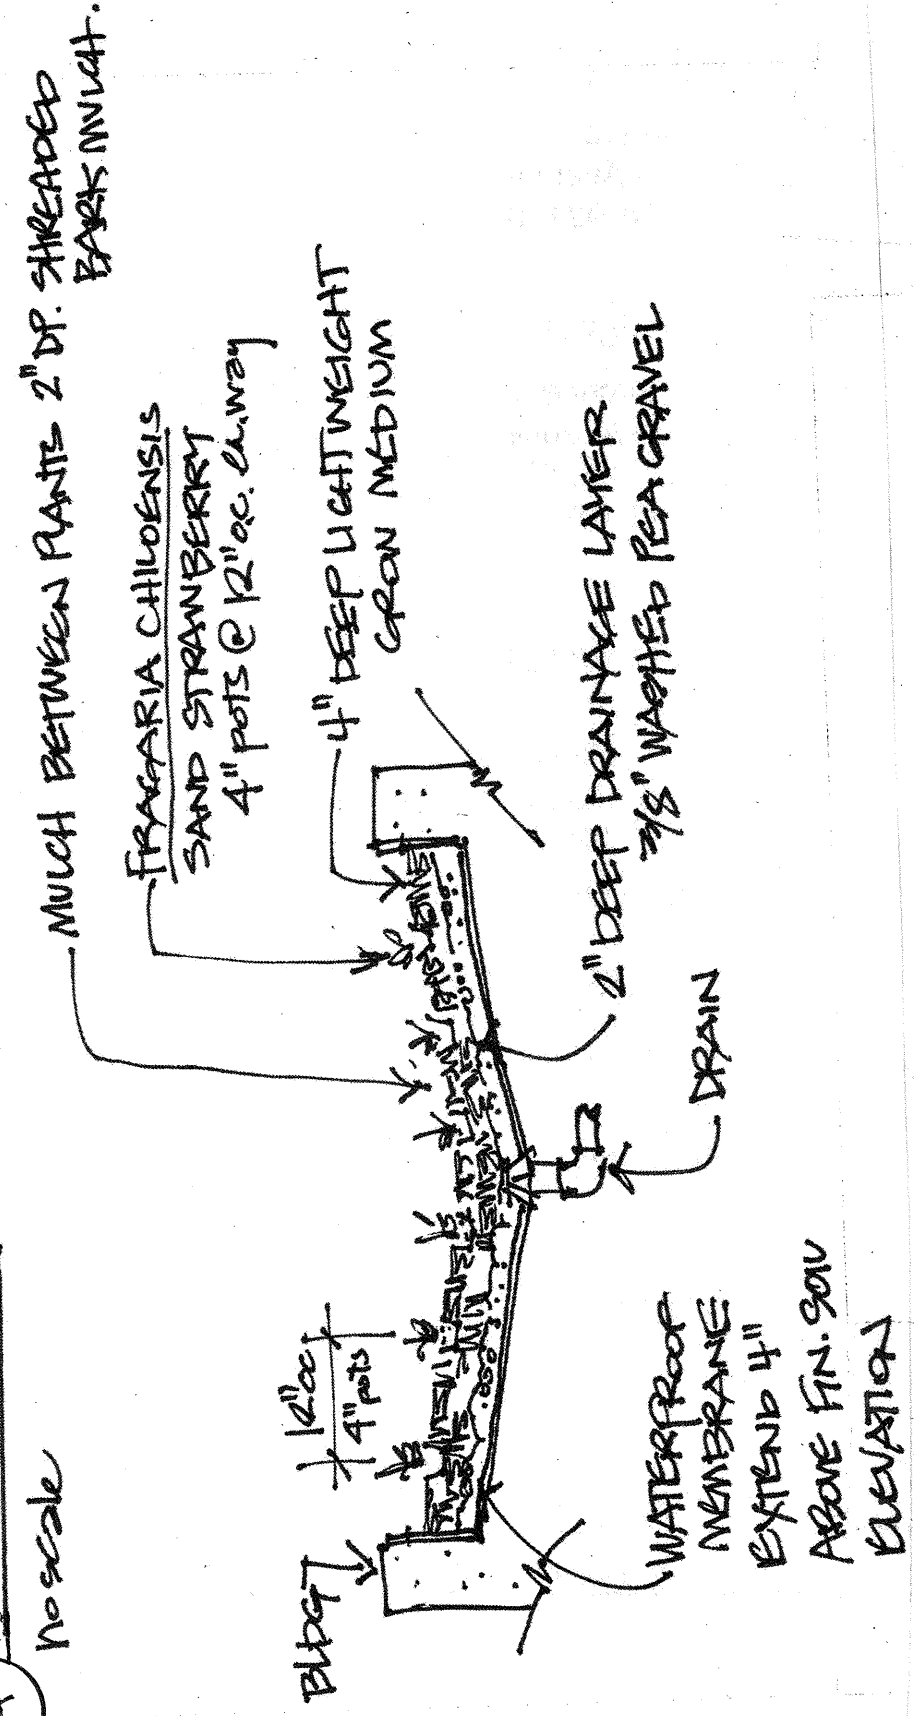 no scale
MULCH BETWEEN PLANTS 2" DP. SHREADED
BARK MULCH.
FRAGARIA CHILOENSIS
SAND STRAWBERRY
4" POTS @ 12" O.C. EA. WAY
4" DEEP LIGHTWEIGHT
GROW MEDIUM
12" OC
4" POTS
BLDG
2" DEEP DRAINAGE LAYER
3/8" WASHED PEA GRAVEL
DRAIN
WATERPROOF
MEMBRANE
EXTEND 4"
ABOVE FIN. SOIL
ELEVATION